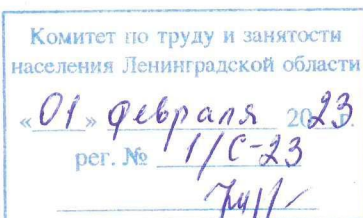 Комитет по труду и занятости
населения Ленинградской области
«01» февраля 2023 г.
рег. № 1/С-23